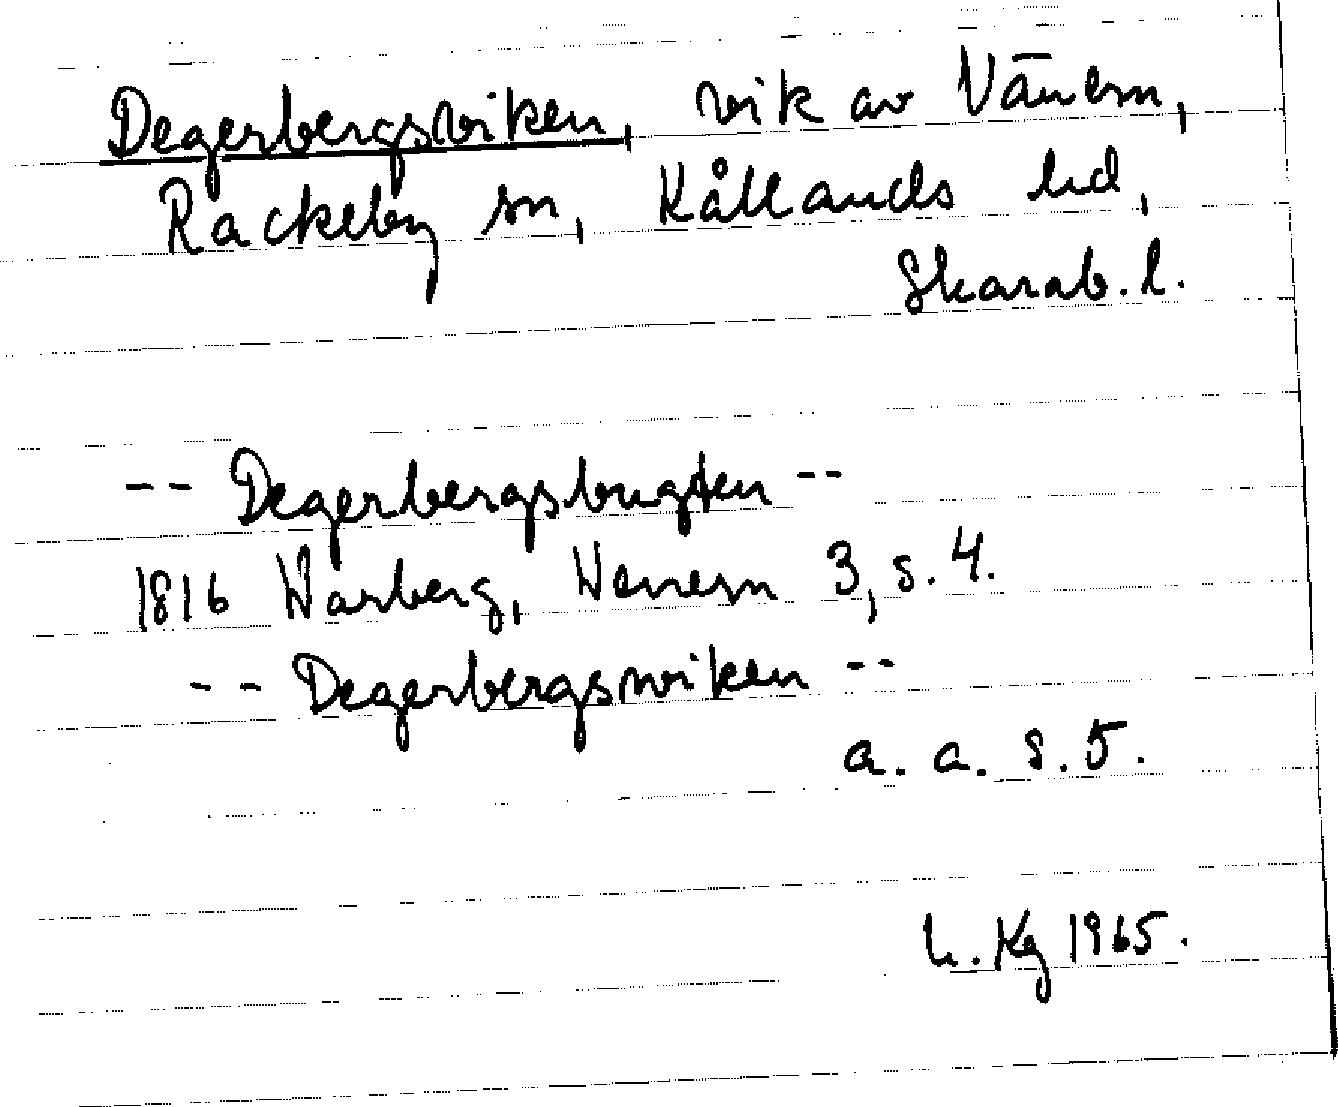 Degerbergsviken, vik av Vänern,
Rackeby sn, Kållands hd,
Skarab. l.
-- Degerbergsbugten --
1816 Warberg, Wenern 3, s. 4.
-- Degerbergswiken --
a. a. s. 5.
L. Kg 1965.